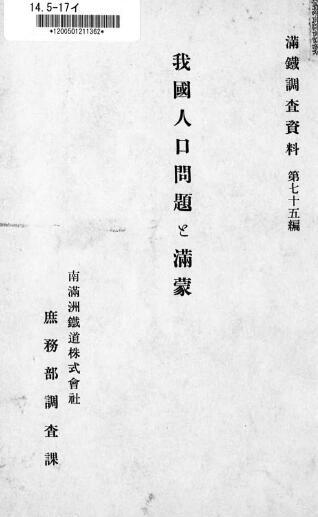 14.5-17イ
*1200501211362*
滿鐵調査資料 第七十五編
我國人口問題と滿蒙
南滿洲鐵道株式會社
庶務部調査課